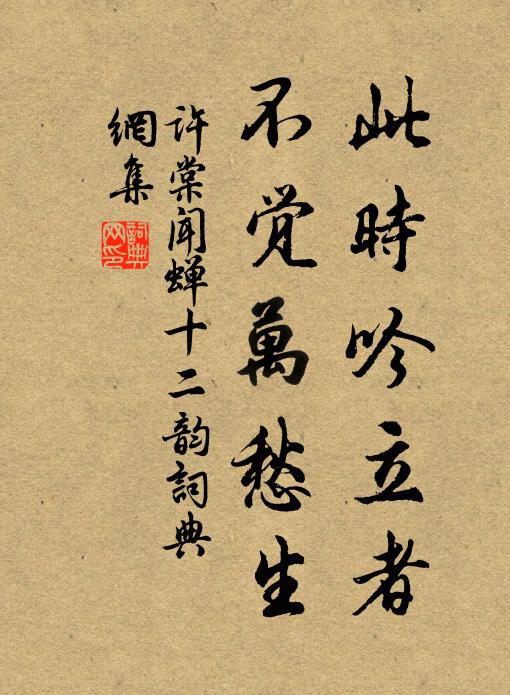 此時吟立者
不覚萬愁生
許棠闻蝉十二韵詞典
網集
詞典
网印